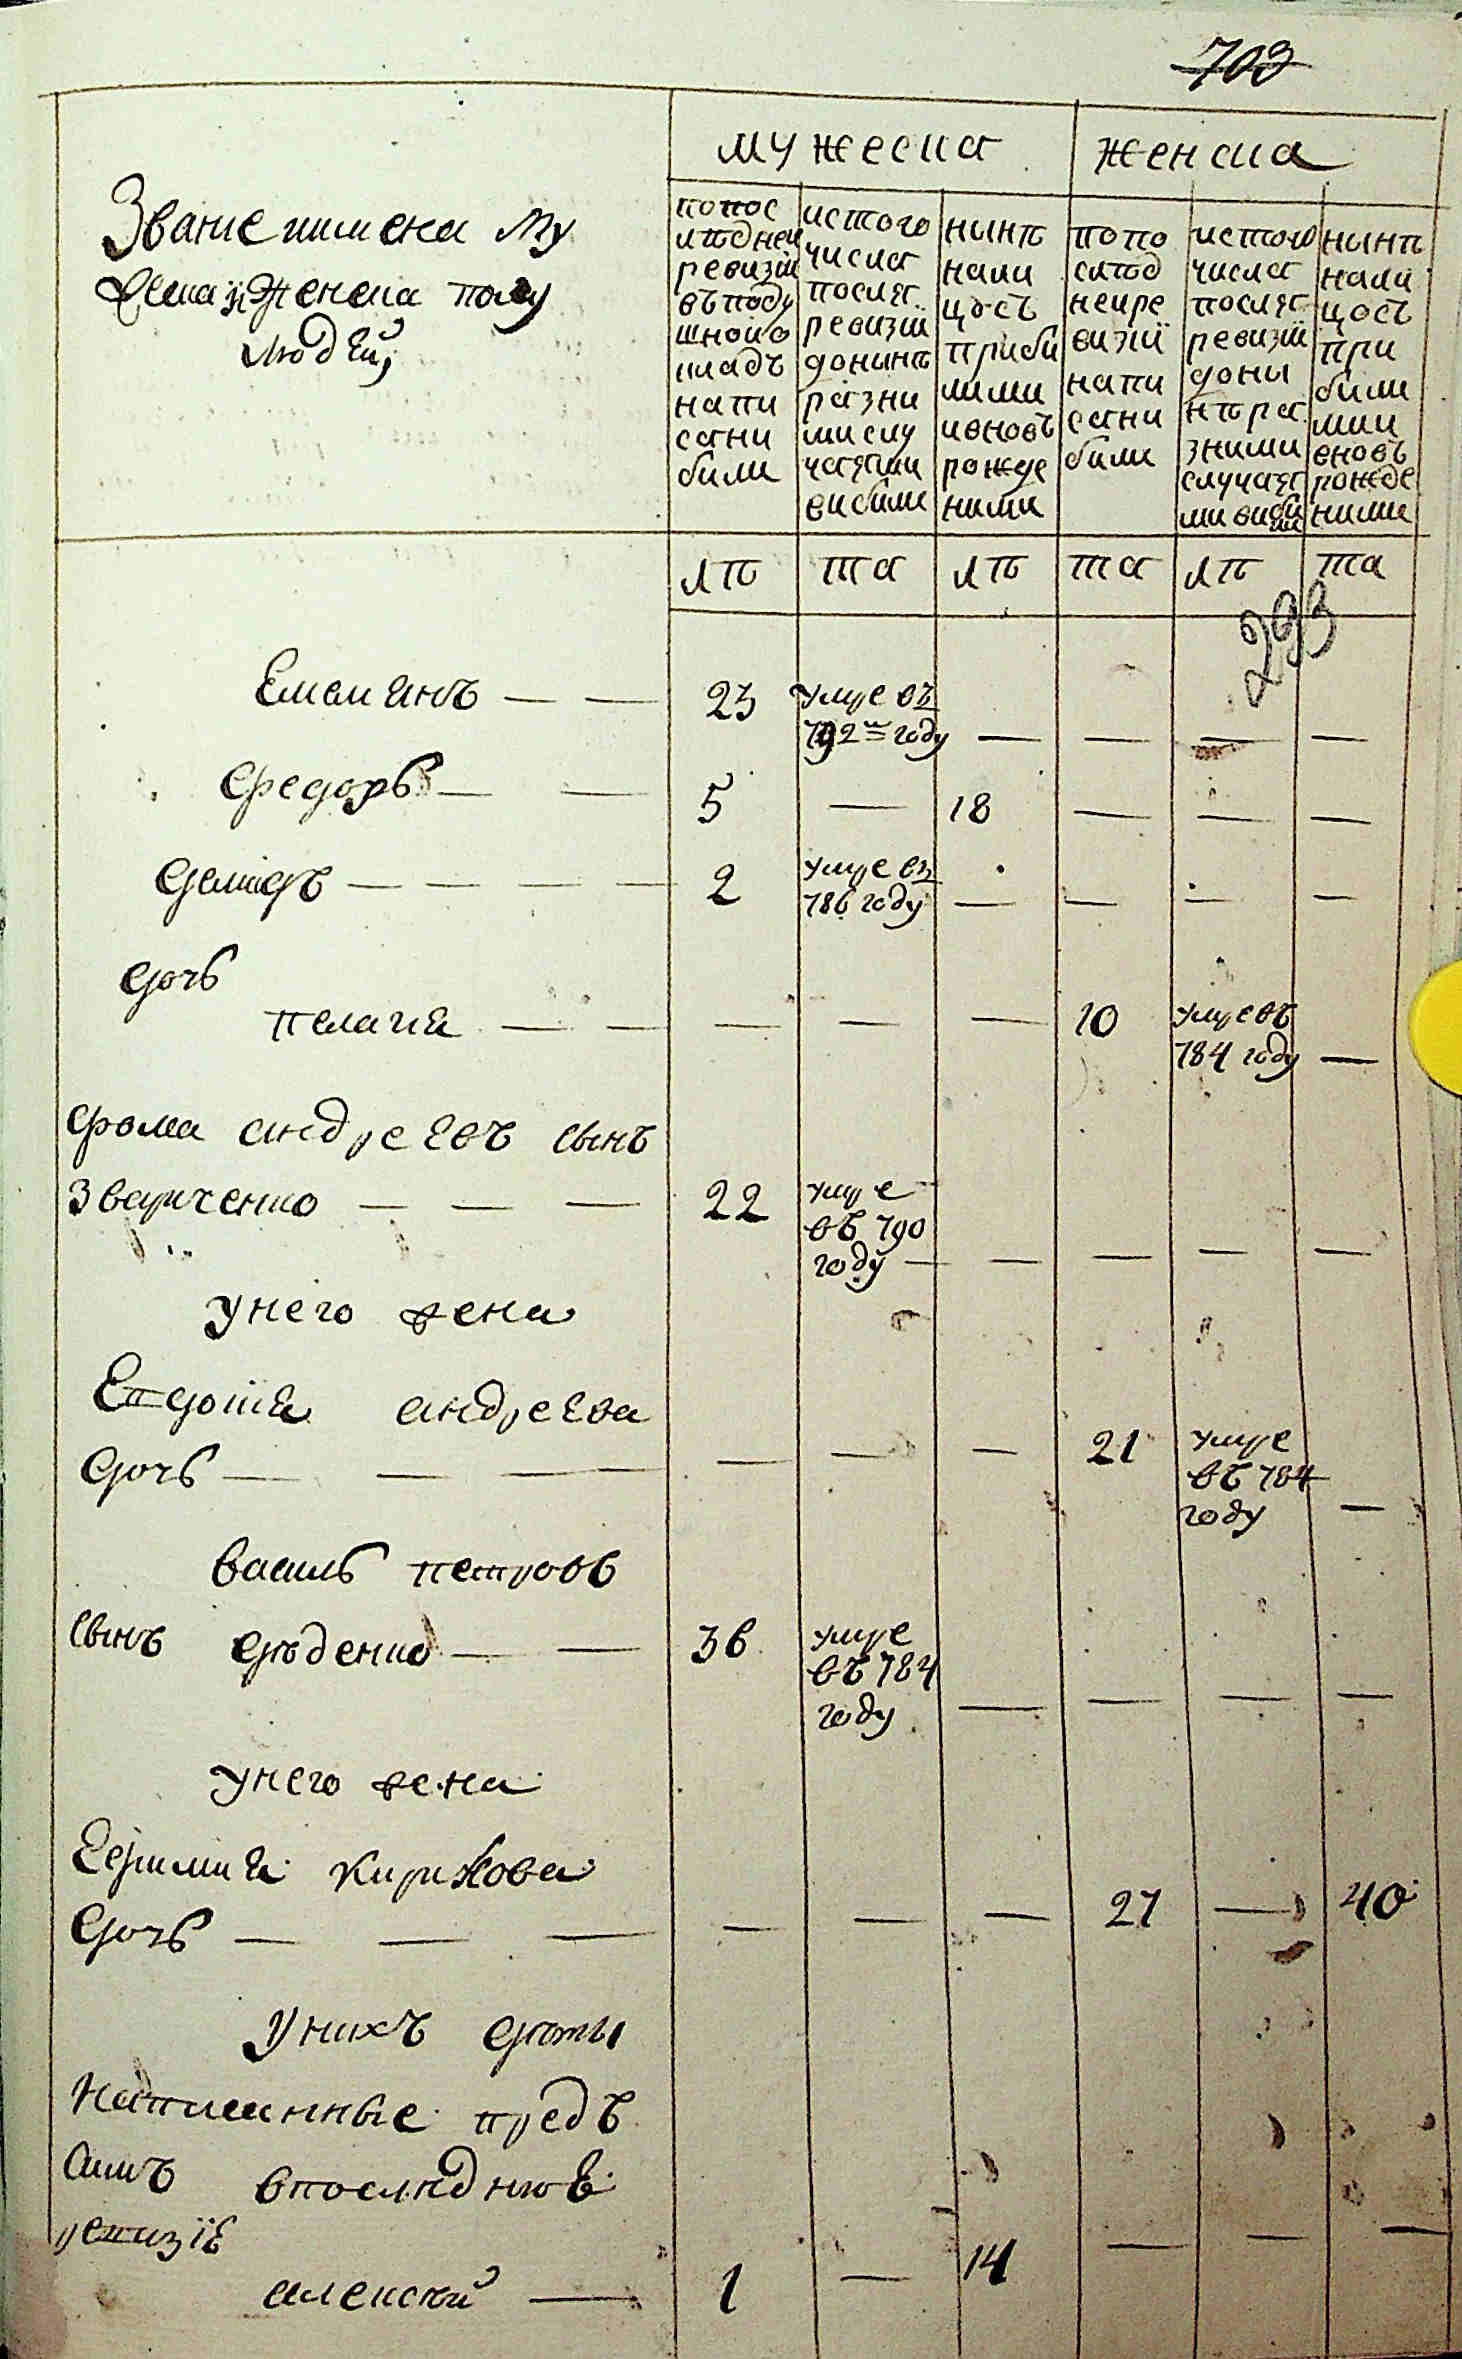 703
мужеска женска
Звание имена му
жеска и женска полу
людей,
попос
лѣдней
ревизіи
въ поду
шной о
кладъ
напи
сани
били
истого
числа
послѣ
ревизіи
донынѣ
разни
ми слу
чаями
вибили
нынѣ
нали
цосъ
приби
лими
ивновъ
рожде
ними
попо
слѣд
неире
визіи
напи
сани
били
истого
числа
послѣ
ревизіи
доны
нѣ ра
зними
случаяг
ми виби
ли
нынѣ
нали
цосъ
при
били
ми и
вновъ
рожде
ними
лѣ та лѣ та лѣ та
293
Емелянъ — — 23 умре въ
792м году — — — —
Федоръ — — 5 — 18 — — —
Демидъ — — — — 2 умре въ
786 году — — — —
дочь
Пелагия — — — — — 10 умре въ
784 году —
Фома Андреевъ сынъ
Зварченко — — — 22 умре
въ 790
году — — — — —
унего жена
Евдокия Андреева
дочь — — — — — — 21 умре
въ 784
году —
Василь Петровъ
сынъ Дѣденко — — 36 умре
въ 784
году — — — —
унего жена
Кирилова
дочь — — — — — — 27 — 40
унихъ дѣти
написанные предъ
симъ впослѣднюю
ревизіе
Алексѣй — 1 — 14 — — —